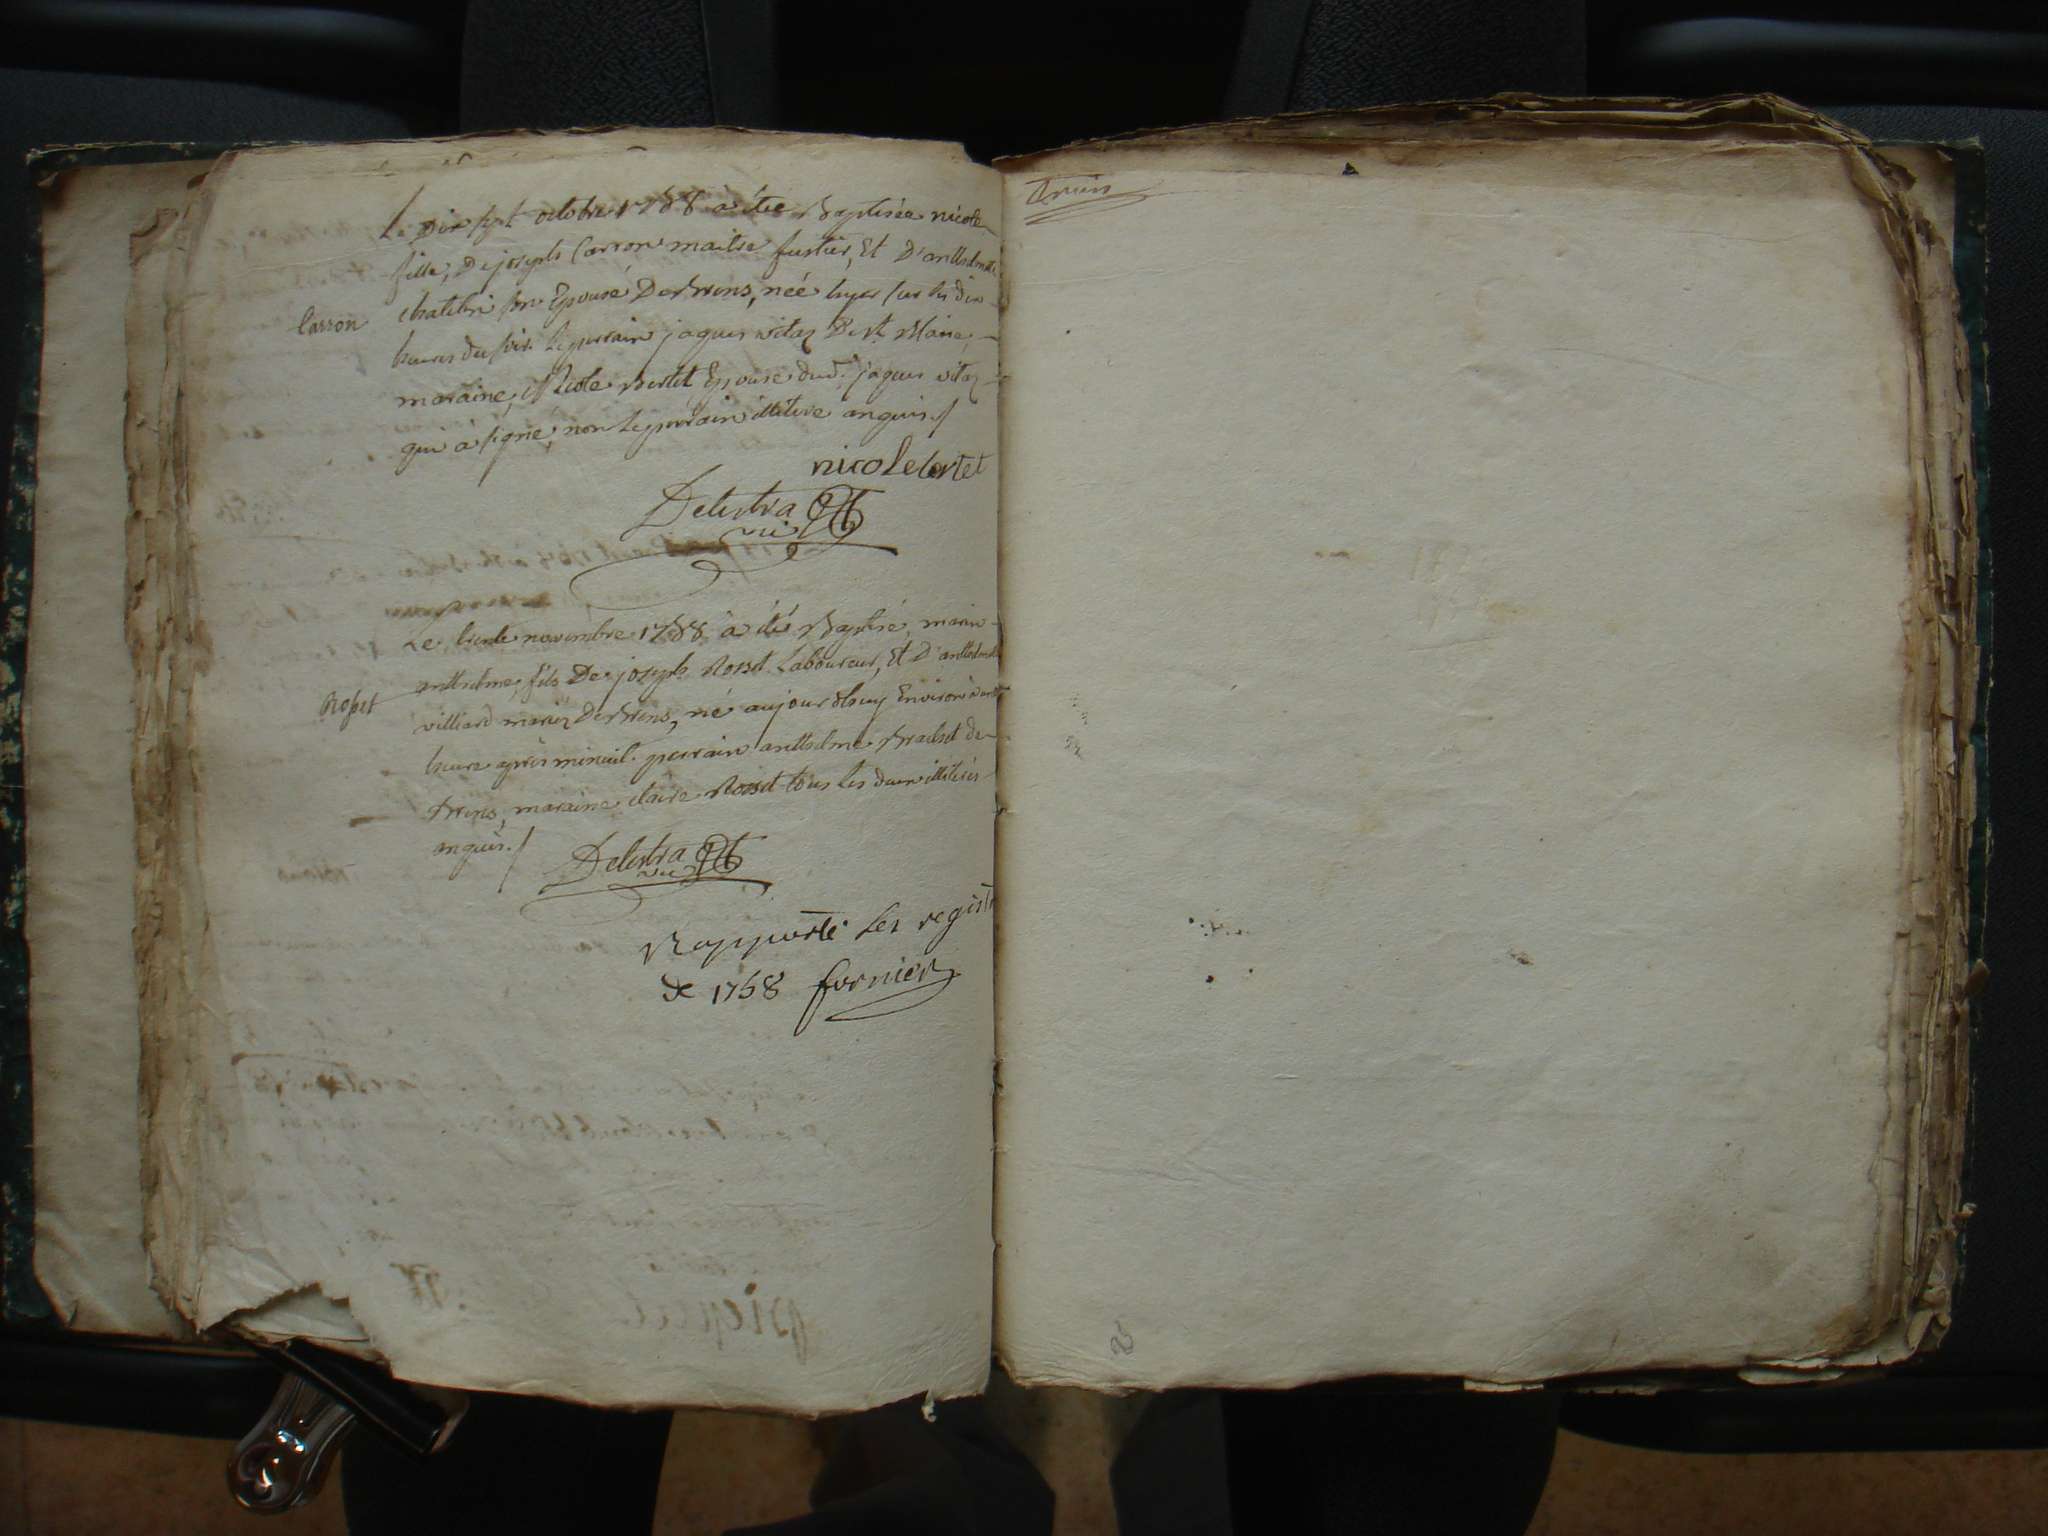 Le Dix sept octobre 1758 à étée Baptisée nicole
fille, De joseph Carron maitre fustier, Et D'anthelmette
Carron
chatelin son Epouse De Brens, née hyer sur les dix
heures du soir. Le parrain jaques vitoz De St. Blaise,
maraine, Nicole Bertet Epouse dud. jaques vitoz
qui à signé, non Le parrain illiteré enquis./
nicole bertet
Delestra
vic
Le trente novembre 1758 à été Baptisé marin
anthelme, fils De joseph Rosset Laboureur, Et D'anthelmette
Rosset
villiard mariez De Brens, né aujourd'huy Environ à une
heure après minuit. parrain anthelme Brachet de
Brens, maraine claire Rosset tous les deux illiterés
enquis./
Delestra
vic
Rapporté les regist
de 1758 fornier